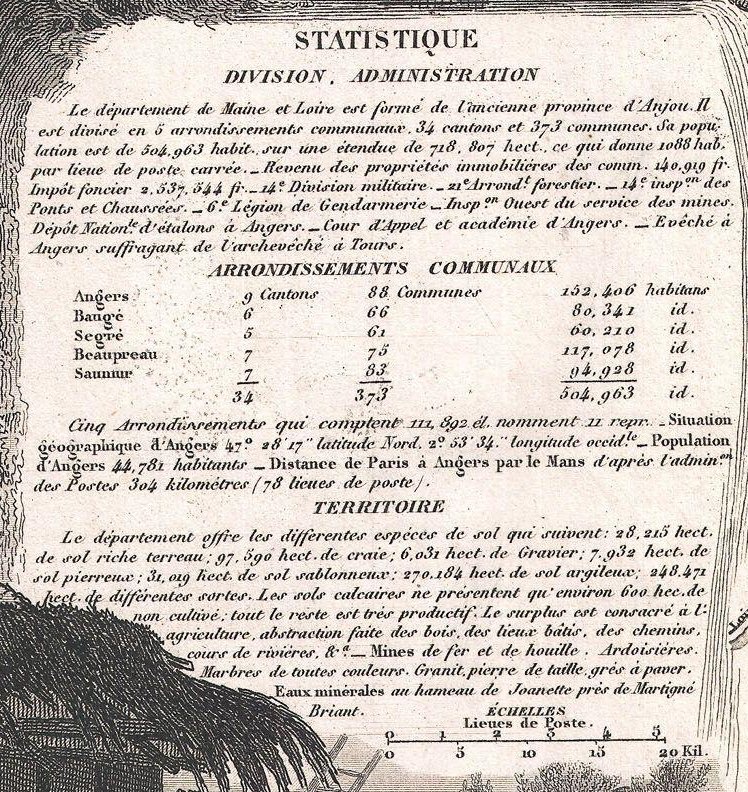 STATISTIQUE
DIVISION, ADMINISTRATION
Le département de Maine et Loire est formé de l'ancienne province d'Anjou. Il
est divisé en 5 arrondissements communaux, 34 cantons et 373 communes. Sa popu-
lation est de 504,963 habit., sur une étendue de 718,807 hect., ce qui donne 1088 hab.
par lieue de poste carrée. — Revenu des propriétés immobilières des comm. 140,919 fr.
Impôt foncier 2,537,544 fr. — 14e Division militaire. — 21e Arrondt. forestier. — 14e inspon des
Ponts et Chaussées. — 6e Légion de Gendarmerie — Inspon Ouest du service des mines.
Dépôt Natiońle d'étalons à Angers. — Cour d'Appel et académie d'Angers. — Evêché à
Angers suffragant de l'archevêché à Tours.
ARRONDISSEMENTS COMMUNAUX
Angers 9 Cantons 88 Communes 152,406 habitans
Baugé 6 66 80,341 id.
Segré 5 61 60,210 id.
Beaupreau 7 75 117,078 id.
Saumur 7 83 94,928 id.
34 373 504,963 id.
Cinq Arrondissements qui comptent 111,892 él. nomment 11 repr. — Situation
géographique d'Angers 47° 28' 17" latitude Nord, 2° 53' 34." longitude occidle — Population
d'Angers 44,781 habitants — Distance de Paris à Angers par le Mans d'après l'admin.on
des Postes 304 kilomètres (78 lieues de poste).
TERRITOIRE
Le département offre les differentes espèces de sol qui suivent: 28,215 hect.
de sol riche terreau; 97,590 hect. de craie; 6,031 hect. de Gravier; 7,932 hect. de
sol pierreux; 31,019 hect. de sol sablonneux; 270,184 hect. de sol argileux; 248,471
hect. de différentes sortes. Les sols calcaires ne présentent qu'environ 600 hec. de
non cultivé; tout le reste est très productif. Le surplus est consacré à l'-
agriculture, abstraction faite des bois, des lieux bâtis, des chemins,
cours de rivières, &a. — Mines de fer et de houille. Ardoisières.
Marbres de toutes couleurs. Granit, pierre de taille, grés à paver.
Eaux minérales au hameau de Joanette près de Martigné
Briant.
ÉCHELLES
Lieues de Poste.
0 1 2 3 4 5
0 5 10 15 20 Kil.